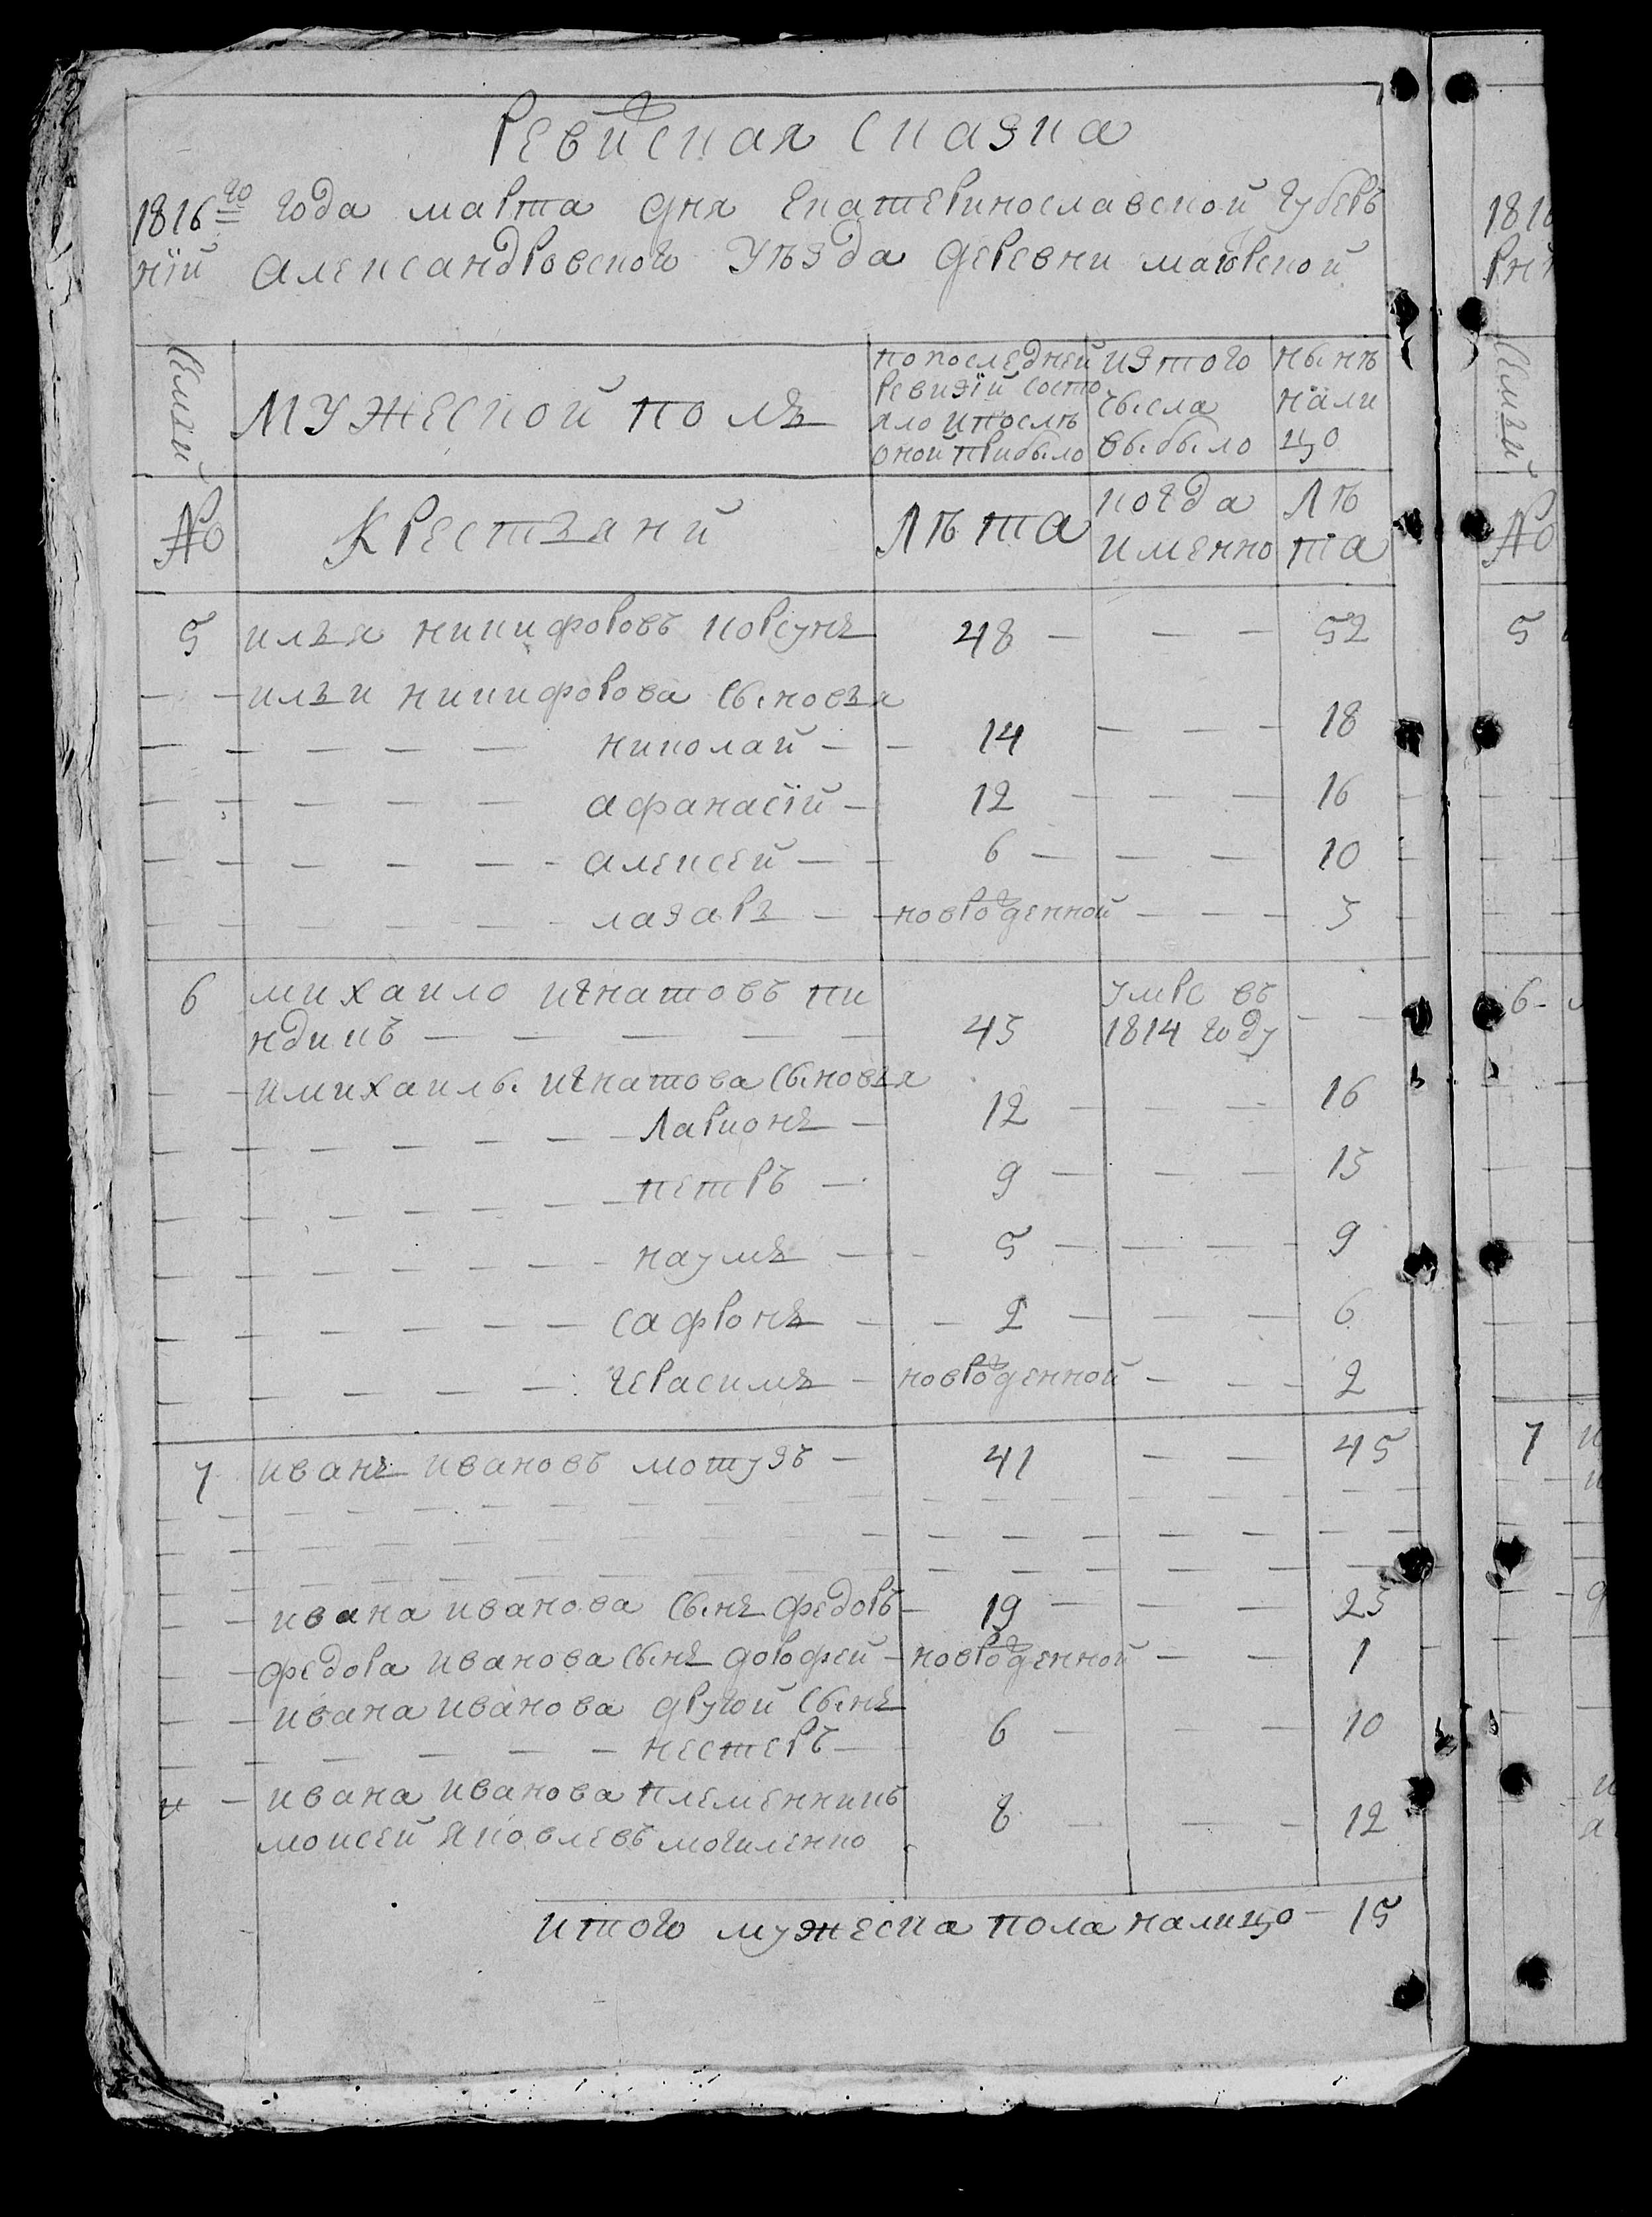 Ревиская сказка
1816го года марта дня Екатеринославской губер
нїй Александровского Уѣзда деревни маюрской
Семьи
мужеской полъ
по последней
ревизїй состо
яло и послѣ
оной прибыло
из того
чысла
выбыло
нынѣ
нали
цо
№
Крестьяни
Лѣта
когда
именно
Лѣ
та
5 илья никифоровъ корсунъ 48 52
ильи никифорова сыновья
николай 14 18
афанасїй 12 16
алексей 6 10
лазарь новрожденной 3
6 михаило игнатовъ ки
ндикъ 43 умре въ
1814 году
и михаилы игнатова сыновья
Ларионъ 12 16
петръ 9 13
наумъ 5 9
сафронъ 2 6
герасимъ новрожденной 2
7 иванъ ивановъ мотузъ 41 45
ивана иванова сынъ федоръ 19 23
федора иванова сынъ дорофей новрожденной 1
ивана иванова другой сынъ
нестеръ 6 10
и ивана иванова племенникъ
моисей яковлевъ могиленко 8 12
итого мужеска пола налицо 15
1816
рній
Семьи
№
5
6
7